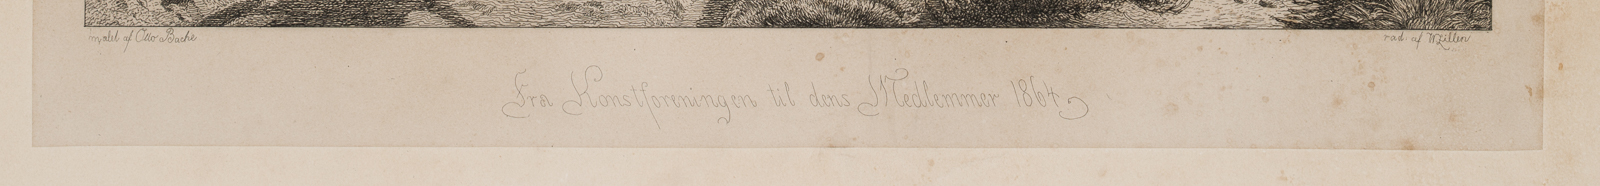 malet af Otto Bache
rad. af W. Zillen
Fra Konstforeningen til dens Medlemmer 1864